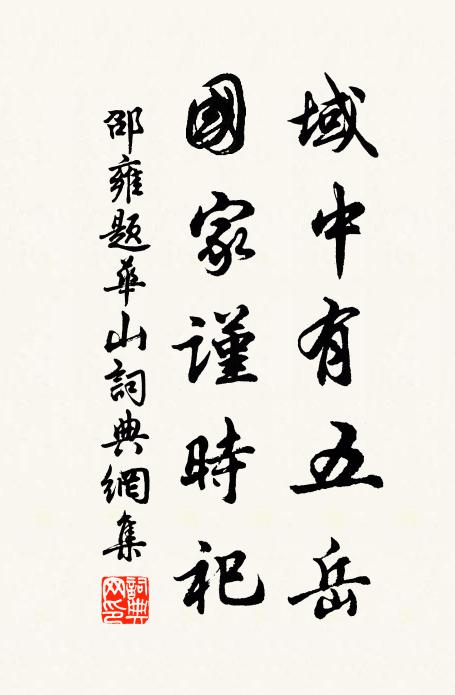 域中有五岳
國家謹時祀
邵雍題華山詞典網集
詞典網印